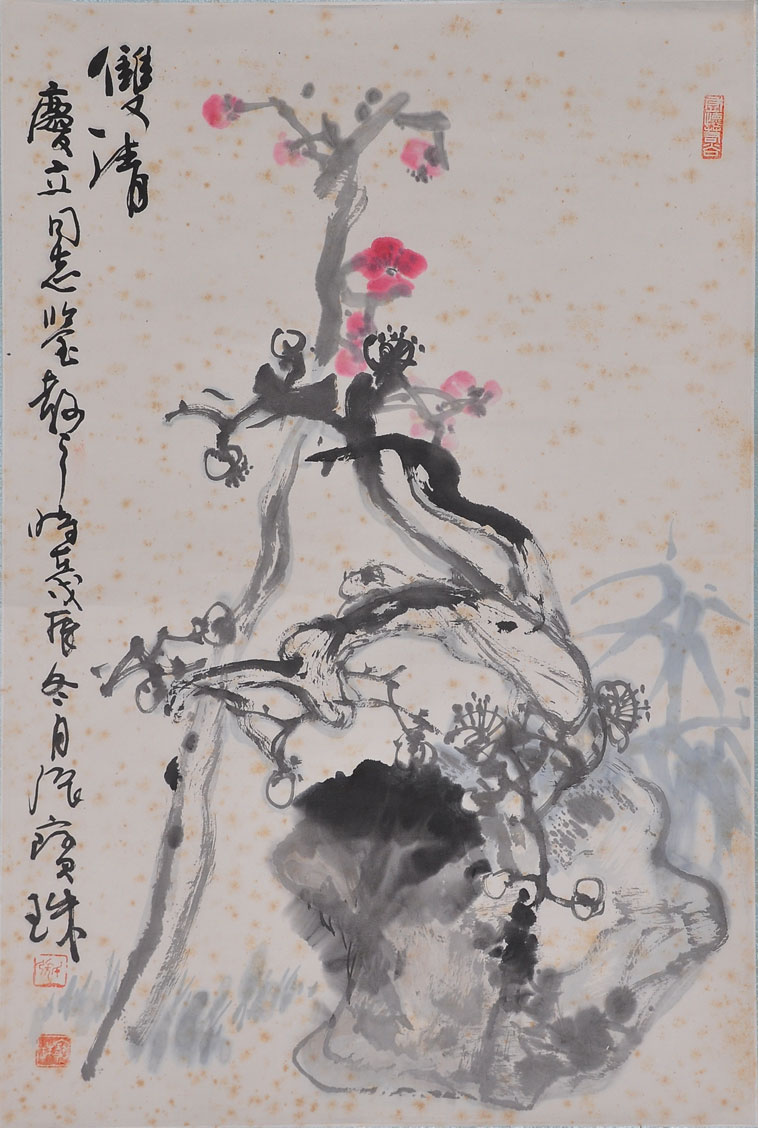 雙清
慶立同志鑒教之時在戊辰冬月張寶珠